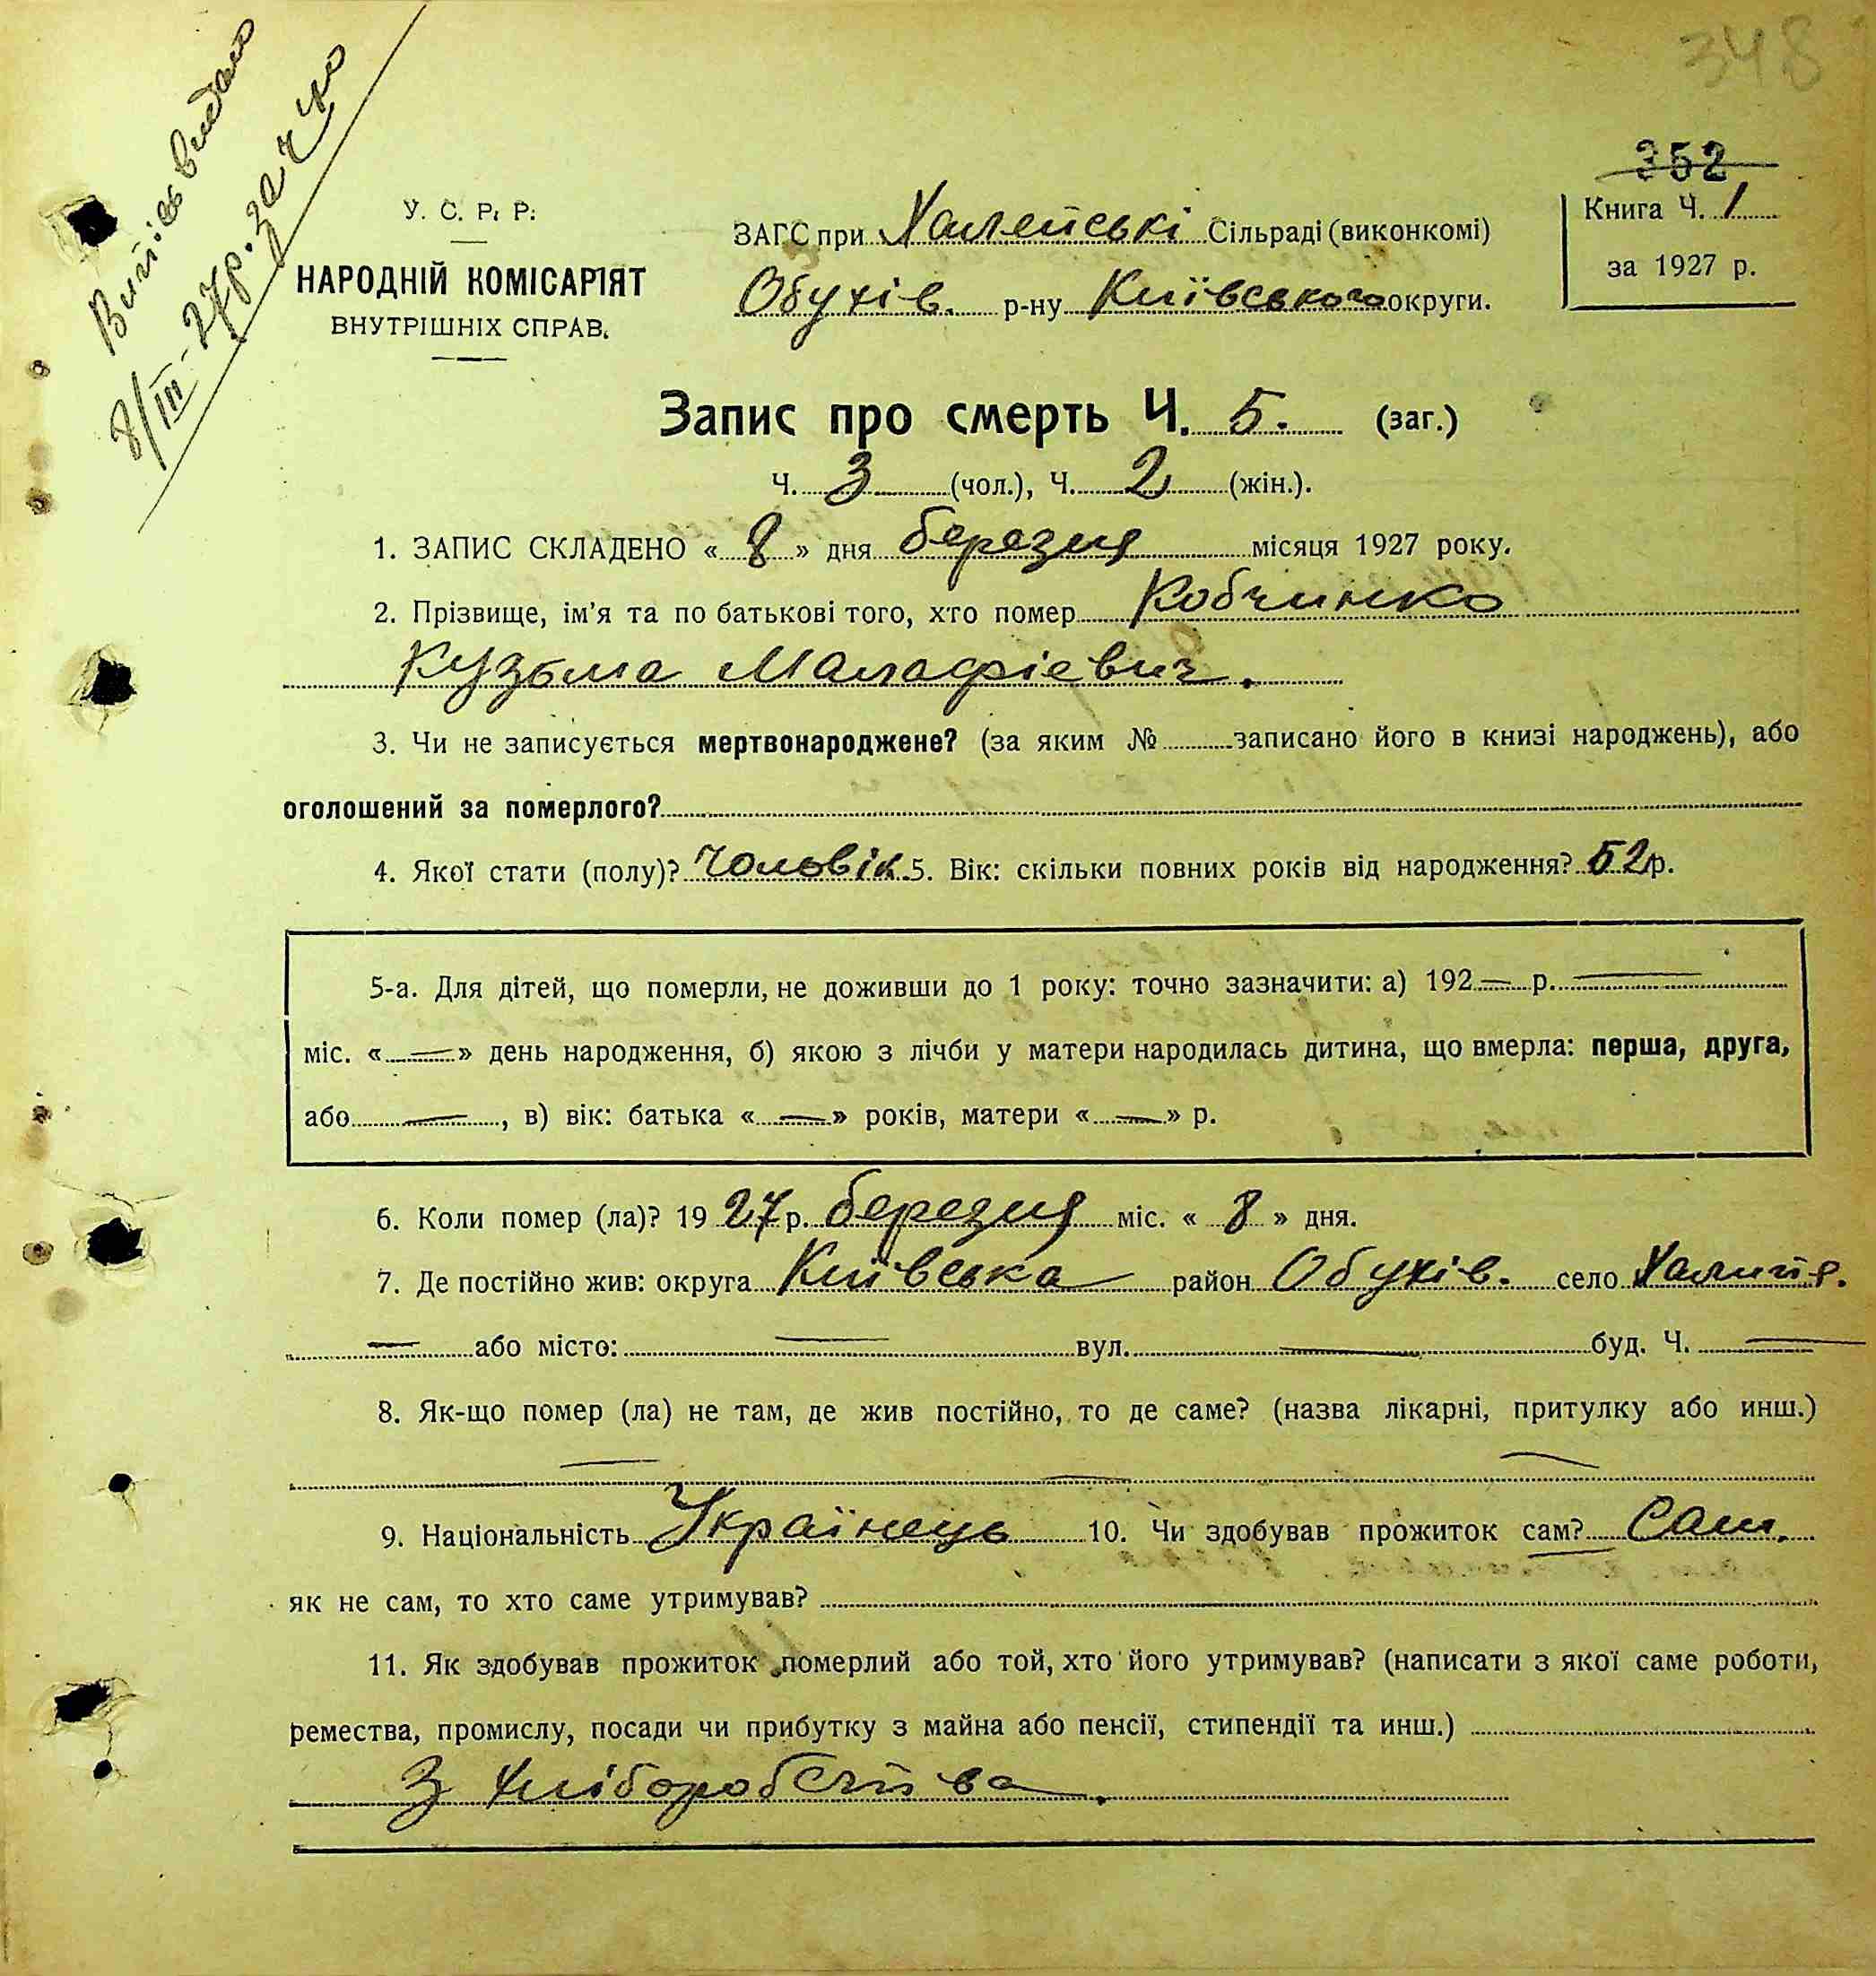 348
352
Витяг видано
8/III-27р. за ч 40
У. С. Р. Р.
НАРОДНІЙ КОМІСАРІЯТ
ВНУТРІШНІХ СПРАВ.
ЗАГС при Халепські Сільраді (виконкомі)
Обухів. р-ну Київського округи.
Книга Ч. 1
за 1927 р.
Запис про смерть Ч. 5. (заг.)
Ч. 3 (чол.), Ч. 2 (жін.).
1. ЗАПИС СКЛАДЕНО « 8 » дня березня місяця 1927 року.
2. Прізвище, ім'я та по батькові того, хто помер Кобчинко
Кузьма Малафієвич.
3. Чи не записується мертвонароджене? (за яким № записано його в книзі народжень), або
оголошений за померлого?
4. Якої стати (полу)? Чоловік. 5. Вік: скільки повних років від народження? 52 р.
5-а. Для дітей, що померли, не доживши до 1 року: точно зазначити: а) 192 — р. —
міс. « — » день народження, б) якою з лічби у матери народилась дитина, що вмерла: перша, друга,
або —, в) вік: батька « — » років, матери « — » р.
6. Коли помер (ла)? 19 27 р. березня міс. « 8 » дня.
7. Де постійно жив: округа Київська район Обухів. село Халипя.
— або місто: — вул. — буд. Ч. —
8. Як-що помер (ла) не там, де жив постійно, то де саме? (назва лікарні, притулку або инш.)
— — —
9. Національність Українець 10. Чи здобував прожиток сам? Сам.
як не сам, то хто саме утримував?
11. Як здобував прожиток померлий або той, хто його утримував? (написати з якої саме роботи,
ремества, промислу, посади чи прибутку з майна або пенсії, стипендії та инш.)
З хліборобства.